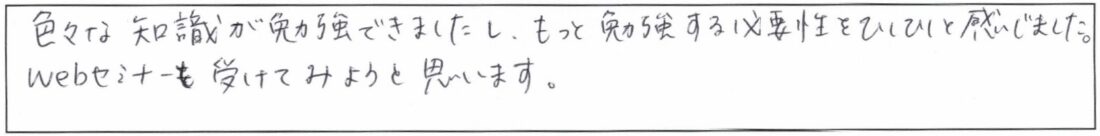 色々な知識が勉強できましたし、もっと勉強する必要性をひしひしと感じました。
webセミナーも受けてみようと思います。